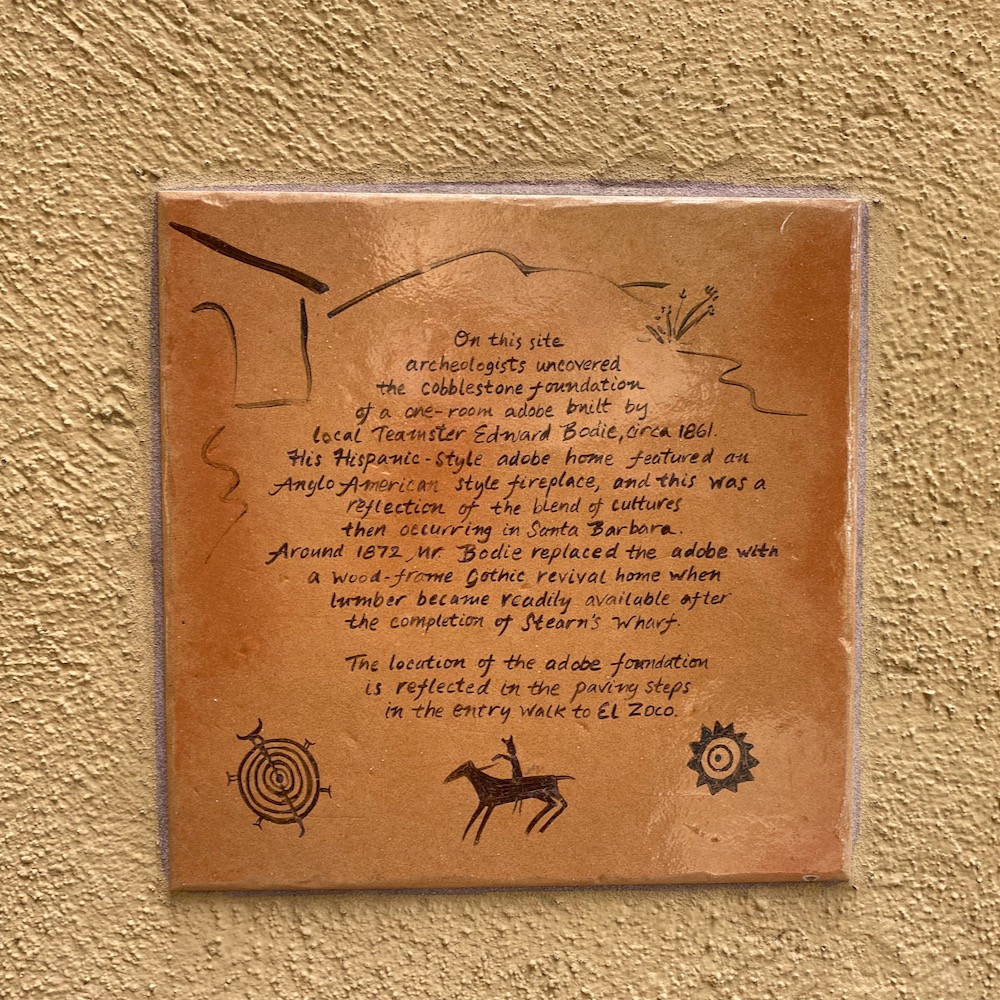 On this site
archeologists uncovered
the cobblestone foundation
of a one-room adobe built by
local Teamster Edward Bodie, circa 1861.
His Hispanic-Style adobe home featured an
Anglo American style fireplace, and this was a
reflection of the blend of cultures
then occurring in Santa Barbara.
Around 1872 Mr. Bodie replaced the adobe with
a wood-frame Gothic revival home when
lumber became readily available after
the completion of Stearn's Wharf.
The location of the adobe foundation
is reflected in the paving steps
in the entry walk to El Zoco.